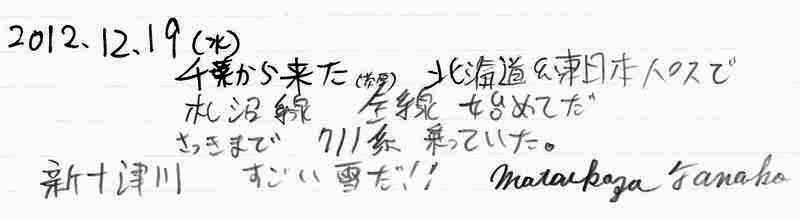 2012.12.19(水)
千葉から来た 北海道&東日本パスで
札沼線 全線 始めてだ
さっきまで 711系 乗っていた。
新十津川 すごい雪だ!! Masakaza Tanaka